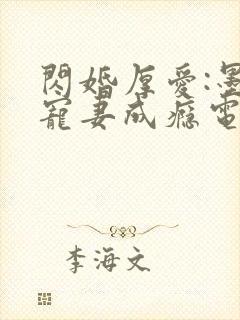 閃婚厚愛:墨
寵妻成癮電
李海文